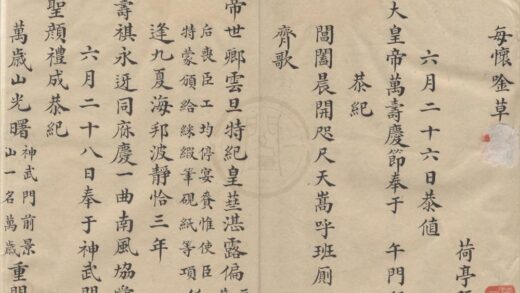 每懷唫草
荷亭
六月二十六日恭值
大皇帝萬壽慶節奉于 午門
恭紀
閶闔晨開咫尺天嵩呼班厠
齊歌
帝世卿雲旦特紀皇莛湛露偏
后喪臣工均停宴賚惟使臣
特蒙頒給綵緞筆硯紙等項
逢九夏海邦波靜恰三年
壽祺永迓同庥慶一曲南風協
聖顏禮成恭紀
六月二十八日奉于神武門
萬歲山光曙神武門前景山一名萬歲重門